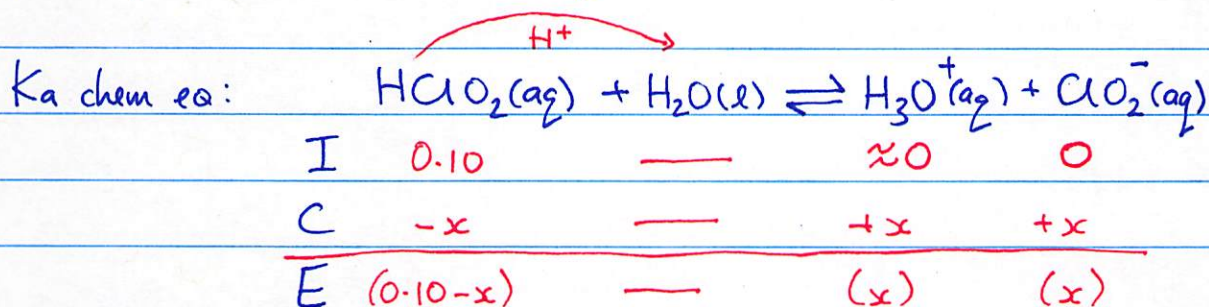 H⁺
Ka chem eq: HClO₂(aq) + H₂O(l) ⇌ H₃O⁺(aq) + ClO₂⁻(aq)
I 0.10 — ≈0 0
C -x — +x +x
E (0.10-x) — (x) (x)